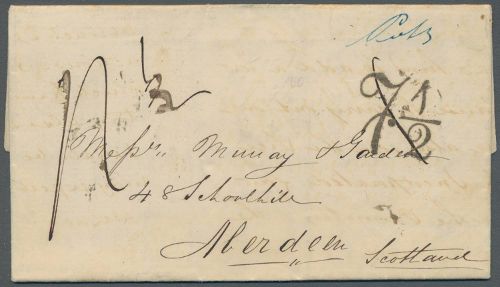 1/½
7½
Messrs Murray & Garden
48 Schoolhill
Aberdeen
Scotland